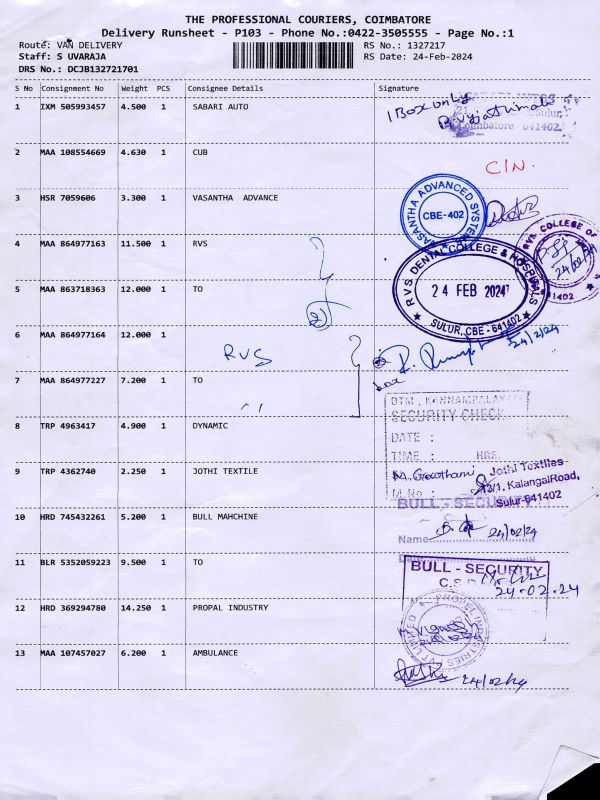 THE PROFESSIONAL COURIERS, COIMBATORE
Delivery Runsheet - P103 - Phone No.:0422-3505555 - Page No.:1
Route: VAN DELIVERY RS No.: 1327217
Staff: S UVARAJA RS Date: 24-Feb-2024
DRS No.: DCJB132721701
S No Consignment No Weight PCS Consignee Details Signature
1 IXM 505993457 4.500 1 SABARI AUTO
1 Box only
Coimbatore - 641402.
2 MAA 108554669 4.630 1 CUB
CIN.
3 HSR 7059606 3.300 1 VASANTHA ADVANCE
VASANTHA ADVANCED SYSTEMS
CBE-402
4 MAA 864977163 11.500 1 RVS
R.V.S. DENTAL COLLEGE & HOSPITALS
24 FEB 2024
SULUR, CBE - 641402
R.V.S. COLLEGE OF
24/02/24
5 MAA 863718363 12.000 1 TO
2
6 MAA 864977164 12.000 1
RVS
24/2/24
7 MAA 864977227 7.200 1 TO
box
8 TRP 4963417 4.900 1 DYNAMIC
DTM, KANNAMPALAYAM
SECURITY CHECK
DATE :
TIME : HRS.
9 TRP 4362740 2.250 1 JOTHI TEXTILE
M. Gowthami
Jothi Textiles
12/1, KalangalRoad,
Sulur-641402
10 HRD 745432261 5.200 1 BULL MAHCHINE
BULL - SECURITY
Name
24/02/24
11 BLR 5352059223 9.500 1 TO
BULL - SECURITY
24.02.24
12 HRD 369294780 14.250 1 PROPAL INDUSTRY
13 MAA 107457027 6.200 1 AMBULANCE
24/02/24